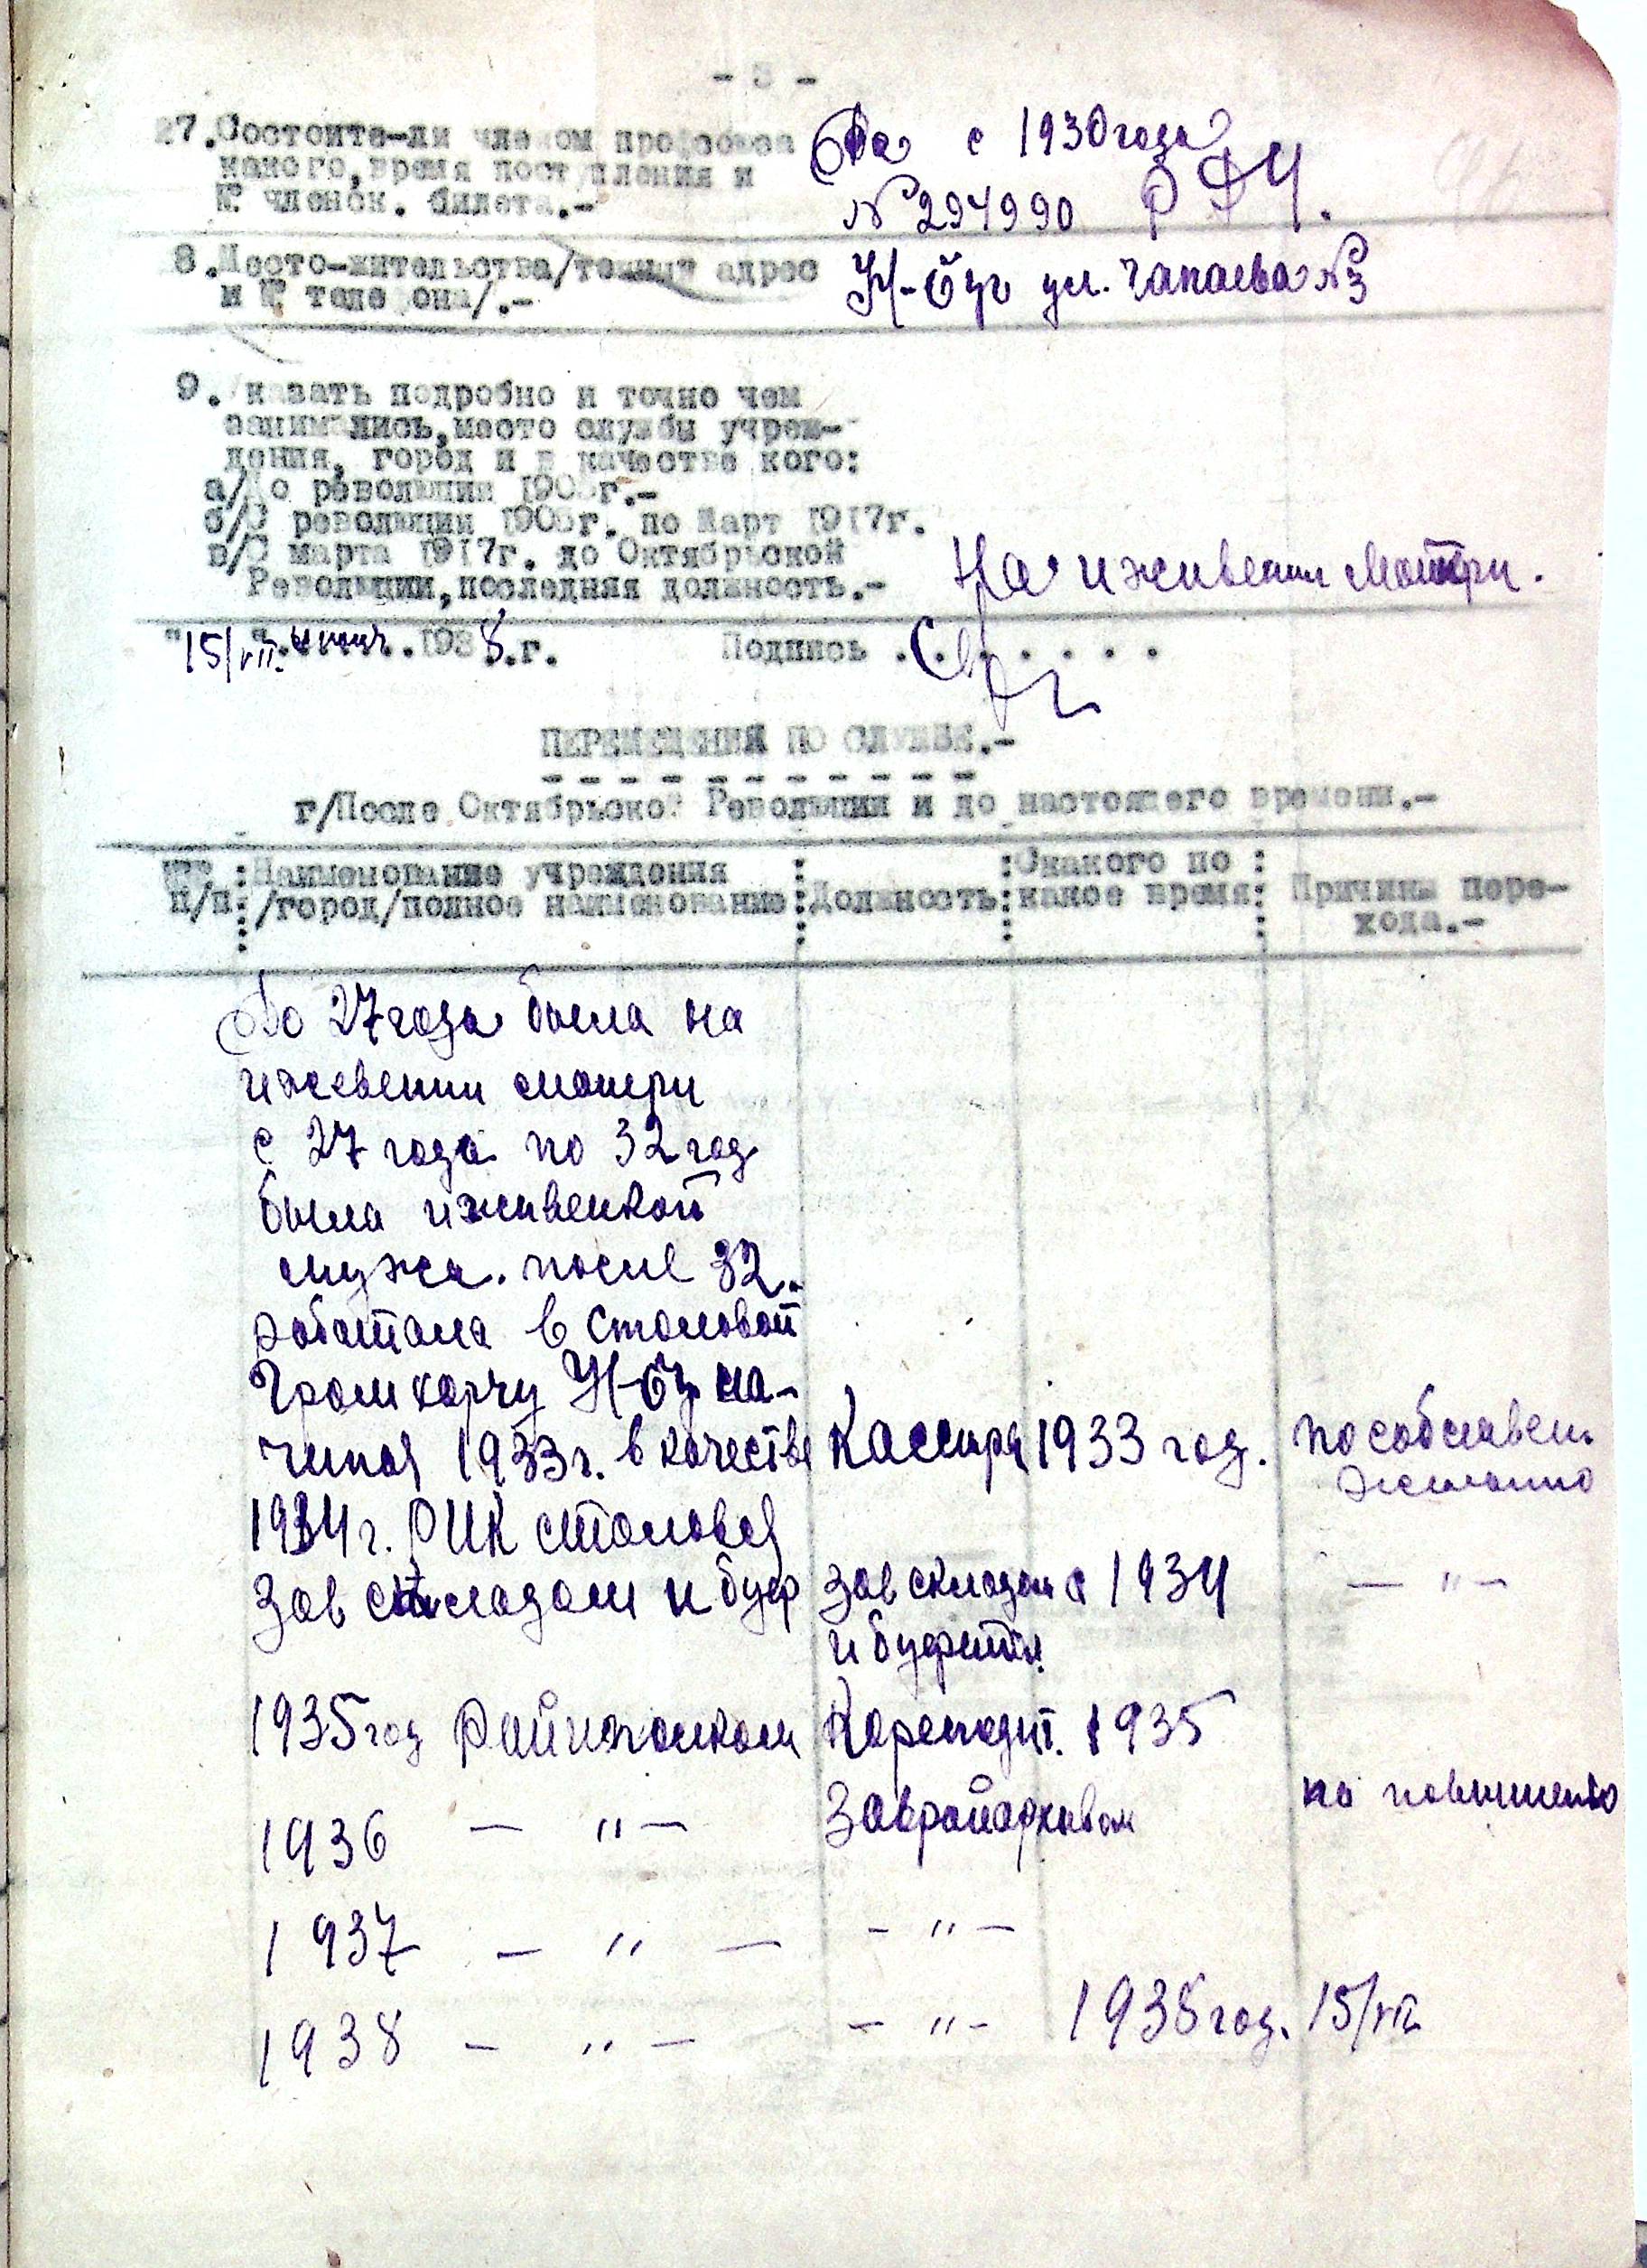 - 3 -
27. Состоите-ли членом профсоюза Да с 1930 года
какого, время поступления и
№ членск. билета.- № 294990 РФЧ.
8. Место-жительства/точный адрес Н-буг ул. Чапаева № 3
и № телефона/.-
9. Указать подробно и точно чем
занимались, место службы учреж-
дения, город и в качестве кого:
а/До революции 1905г.-
б/С революции 1905г. по Март 1917г.
в/С марта 1917г. до Октябрьской
Революции, последняя должность.- На иживении Матери.
"15/VII. 1938.г. Подпись . . . . . . .
ПЕРЕМЕЩЕНИЯ ПО СЛУЖБЕ.-
г/После Октябрьской Революции и до настоящего времени.-
№№ : Наименование учреждения : : Скакого по :
п/п: /город/полное наименование : Должность : какое время : Причина пере-
хода.-
До 27 года была на
ижевении матери
с 27 года по 32 год
была иживенкой
мужа. после 32.
работала в столовой
Н-буг на-
чиная 1933г. в качестве Кассира 1933 год. по собствен.
желанию
1934г. РИК столовая
Зав складом и буф Зав складом с 1934 — " —
и буфета.
1935 год Райисполком 1935
1936 — " — Заврайархивом по повышению
1937 — " — — " —
1938 — " — — " — 1938 год. 15/VII